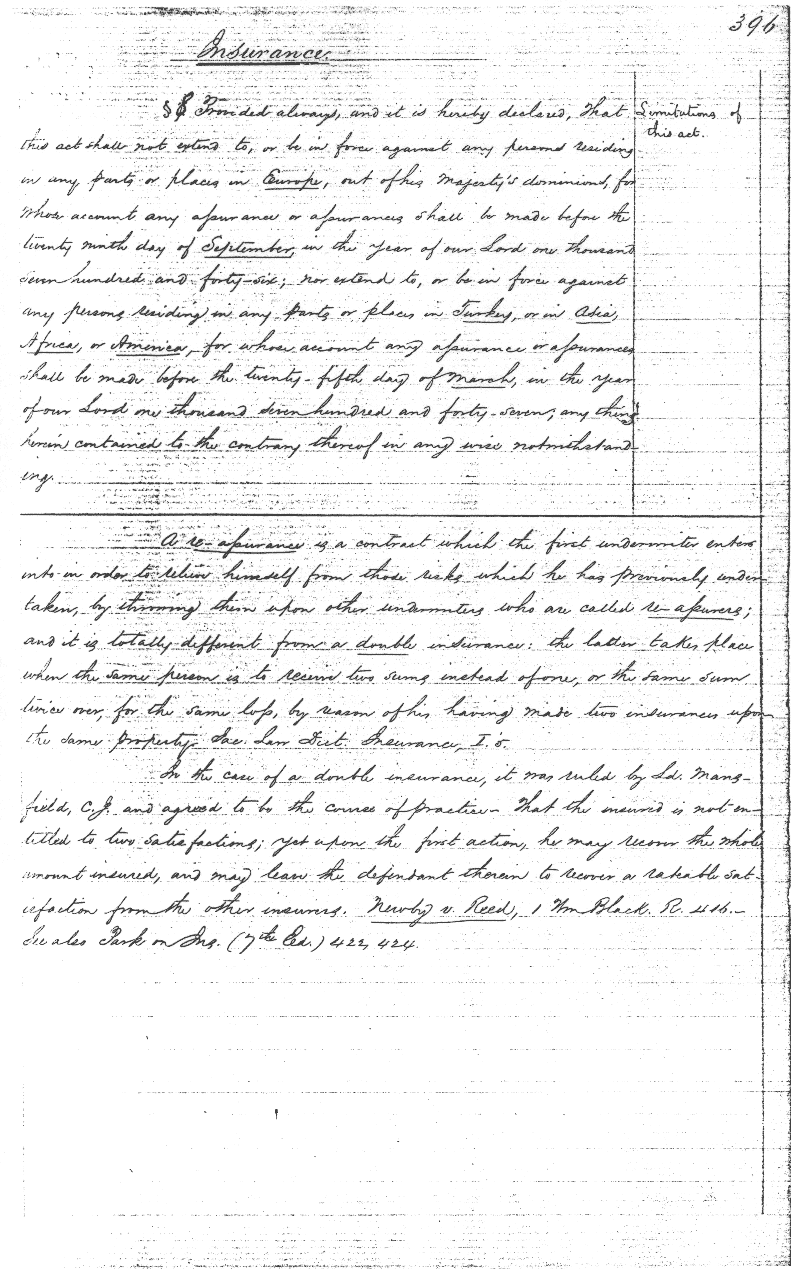 396
Insurance.
§ 8 Provided always, and it is hereby declared, That
Limitations of
this act.
this act shall not extend to, or be in force against any persons residing
in any parts or places in Europe, out of his Majesty's dominions, for
whose account any assurance or assurances shall be made before the
twenty ninth day of September, in the year of our Lord one thousand
seven hundred and forty-six; nor extend to, or be in force against
any persons residing in any parts or places in Turkey, or in Asia,
Africa, or America, for whose account any assurance or assurances
shall be made before the twenty-fifth day of March, in the year
of our Lord one thousand seven hundred and forty-seven; any thing
herein contained to the contrary thereof in any wise notwithstand-
ing.
A re-assurance is a contract which the first underwriter enters
into in order to relieve himself from those risks which he has previously under-
taken, by throwing them upon other underwriters who are called re-assurers;
and it is totally different from a double insurance: the latter takes place
when the same person is to receive two sums instead of one, or the same sum
twice over, for the same loss, by reason of his having made two insurances upon
the same property. Jac. Law Dict. Insurance, I. 5.
In the case of a double insurance, it was ruled by Ld. Mans-
field, C.J. and agreed to be the course of practice - That the insured is not en-
titled to two satisfactions; yet upon the first action, he may recover the whole
amount insured, and may leave the defendant therein to recover a rateable sat-
isfaction from the other insurers. Newby v. Reed, 1 Wm Black. R. 416.-
See also Park on Ins. (7th Ed.) 422, 424.